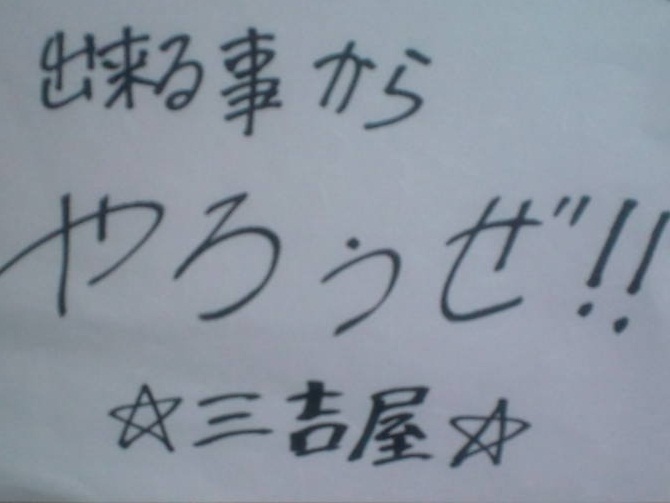 出来る事から
やろうぜ!!
☆三吉屋☆